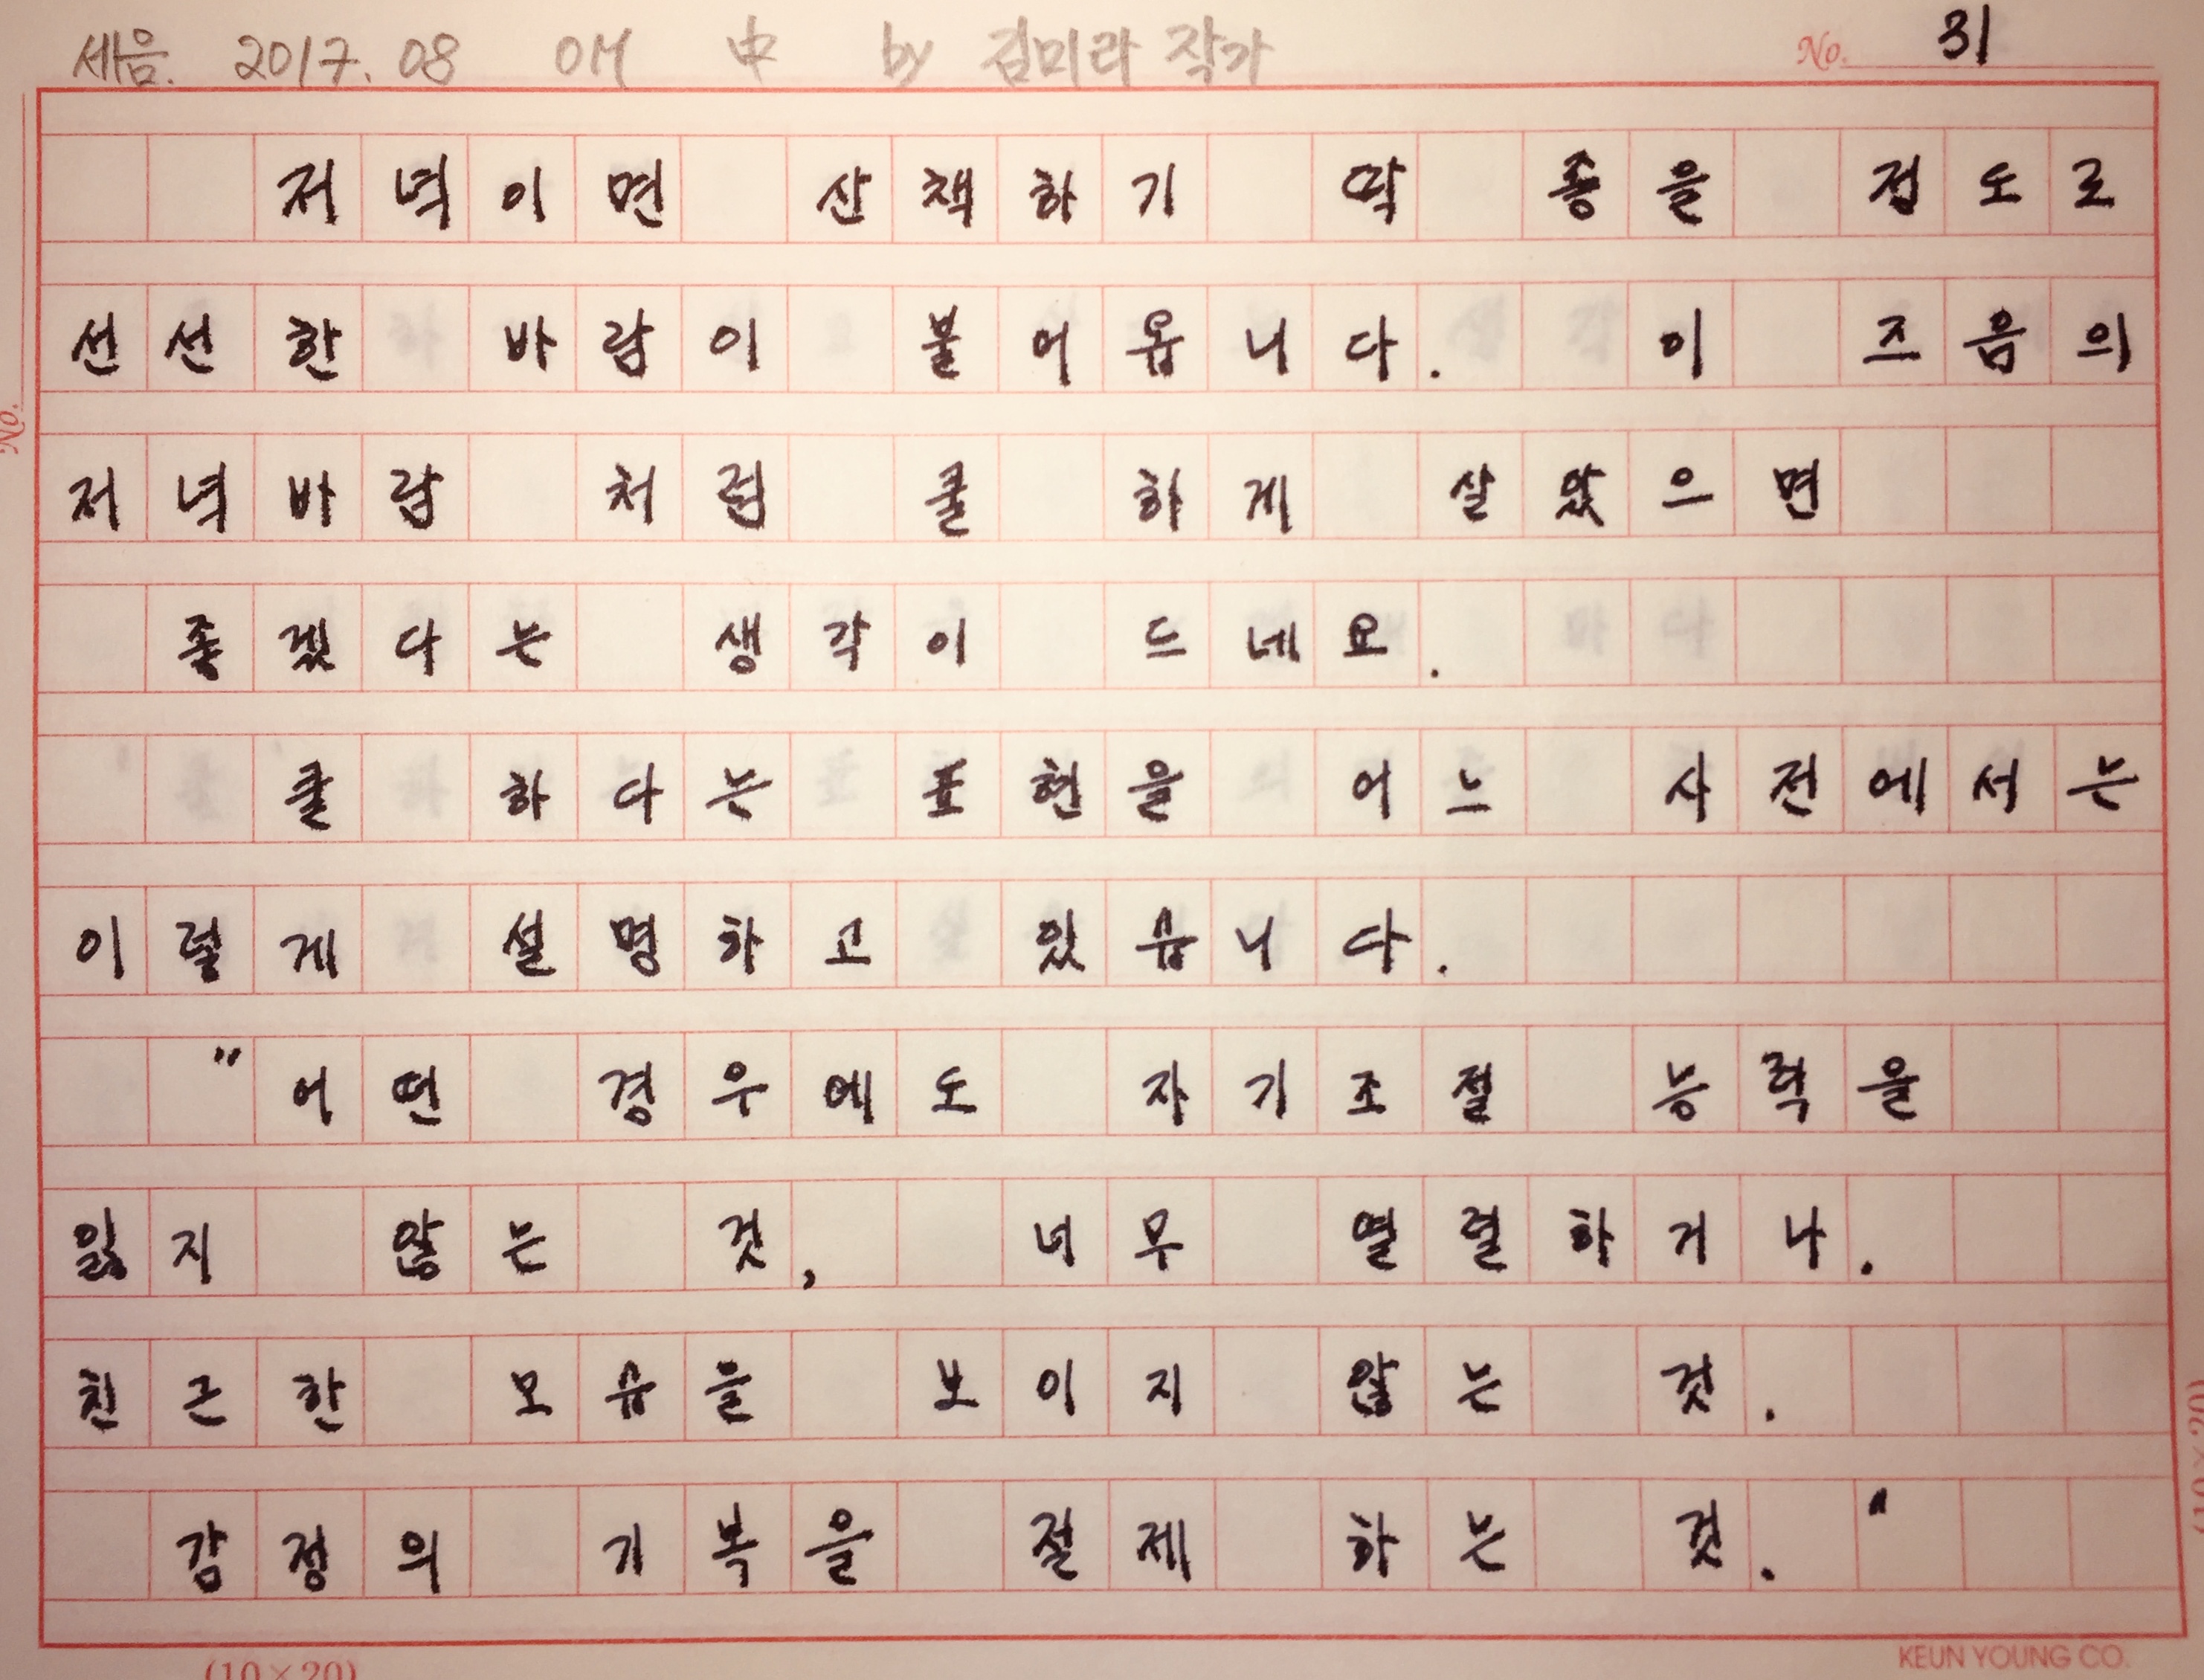 세음. 2017. 08 에 中 by 김미라 작가
No. 31
저녁이면 산책하기 딱 좋을 접도로
선선한 바람이 불어옵니다. 이 즈음의
저녁바람 처럼 쿨 하게 살았으면
좋겠다는 생각이 드네요.
쿨 하다는 표현을 어느 사전에서는
이렇게 설명하고 있습니다.
"어떤 경우에도 자기조절 능력을
잃지 않는 것, 너무 열렬하거나.
친근한 모습을 보이지 않는 것.
감정의 기복을 절제 하는 것."
No.
(10×20)
(10×20)
KEUN YOUNG CO.